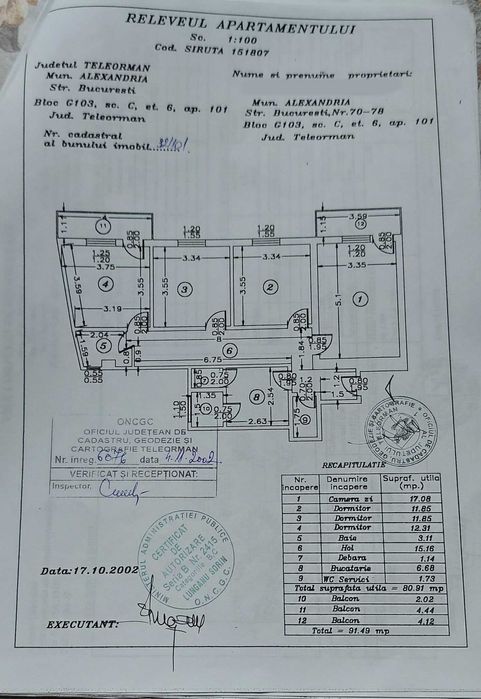 RELEVEUL APARTAMENTULUI
Sc. 1:100
Cod. SIRUTA 151807
Judetul TELEORMAN
Mun. ALEXANDRIA
Str. Bucuresti
Bloc G103, sc. C, et. 6, ap. 101
Jud. Teleorman
Nr. cadastral
al bunului imobil
Nume si prenume proprietari:
Mun. ALEXANDRIA
Str. Bucuresti, Nr. 70-78
Bloc G103, sc. C, et. 6, ap. 101
Jud. Teleorman
1.15
11
0.85
2.00
1.20
1.55
1.20
1.55
3.59
12
0.85
2.00
1.25
1.20
3.75
3.34
3.34
1.20
1.20
3.35
3.59
4
3.55
3
3.55
2
5.1
1
3.19
0.85
2.00
0.85
2.00
0.85
2.00
2.04
5
8
6
1.84
0.85
1.95
1.59
0.55
0.55
6.75
0.85
7
0.75
2.00
1.35
8
2.54
0.80
1.95
0.70
1.2
1.5
0.80
1.95
1.10
1.50
10
0.75
2.00
2.63
1.75
9
ONCGC
OFICIUL JUDEȚEAN DE
CADASTRU, GEODEZIE ȘI
CARTOGRAFIE TELEORMAN
Nr. înreg. 6076 data 4.11.2002
VERIFICAT ȘI RECEPȚIONAT:
Inspector,
MINISTERUL ADMINISTRATIEI PUBLICE
CERTIFICAT
DE
AUTORIZARE
Seria B Nr. 2415
Categoriile B,C
LUNGANU SORIN
O.N.C.G.C.
Data: 17.10.2002
EXECUTANT:
RECAPITULATIE
Nr. incapere Denumire incapere Supraf. utila (mp.)
1 Camera zi 17.08
2 Dormitor 11.85
3 Dormitor 11.85
4 Dormitor 12.31
5 Baie 3.11
6 Hol 15.16
7 Debara 1.14
8 Bucatarie 6.68
9 WC Servici 1.73
Total suprafata utila = 80.91 mp
10 Balcon 2.02
11 Balcon 4.44
12 Balcon 4.12
Total = 91.49 mp